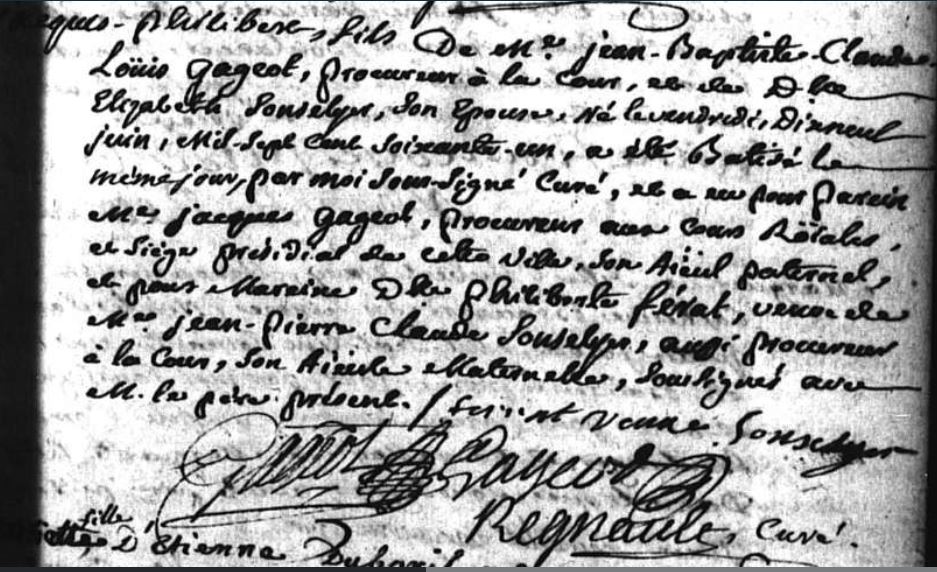 Jacques-Philibert, fils De Me. jean-Baptiste-Claude-
Loüis gageot, procureur à la Cour, et de Dlle
Elizabeth Sonselyer, son Epouse, Né le vendredi, Dixneuf
juin, Mil-Sept Cent Soixante-un, a été Batisé le
même jour, par moi Sous-Signé Curé, et a eu pour parein
Me. jacques gageot, procureur aux Cours Roïales,
et Siége présidial de cette ville, son Aïeul paternel,
et pour Mareine Dlle philiberte ferrat, veuve de
Me. jean-pierre Claude Sonselyer, aussi procureur
à la Cour, son Aïeule Maternelle, Soussignés avec
M. le père présent. / veuve Sonselyer
Gageot Gageot
Regnault, Curé.
fille
D'Etienne